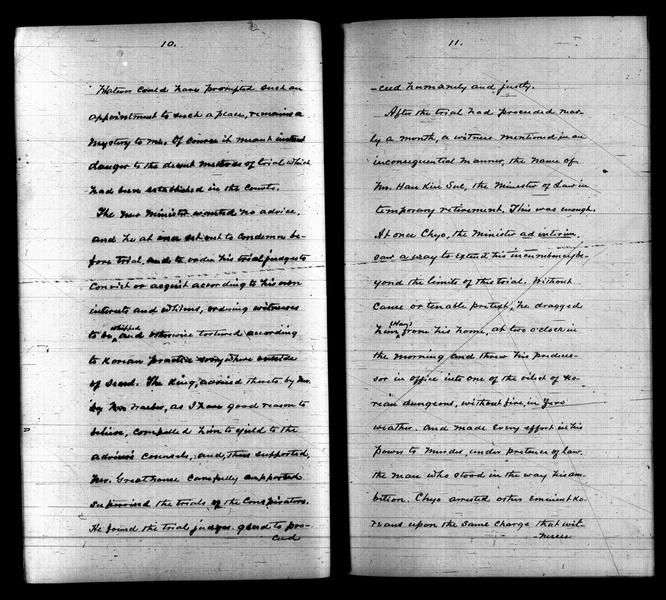 10.
Whatever could have prompted such an
appointment to such a place, remains a
mystery to me. Of course it meant instant
danger to the decent methods of trial which
had been established in the Courts.
The new Minister wanted no advice,
and he at once set out to condemn be-
fore trial, and to order his trial judges to
convict or acquit according to his own
interests and whims, ordering witnesses
to be whipped and otherwise tortured according
to Korean practice everywhere outside
of Seoul. The King, advised thereto by Mr.
by Mr. as I have good reason to
believe, compelled him to yield to the
adviser's counsels, and, thus supported,
Mr. Greathouse carefully supported
supervised the trials of the Conspirators.
He found the trial judges glad to pro-
ceed
11.
-ceed humanely and justly.
After the trial had proceeded near-
ly a month, a witness mentioned in an
inconsequential manner, the name of
Mr. Han Kiu Sul, the Minister of Law in
temporary retirement. This was enough.
At once Chyo, the Minister ad interim,
saw a way to extend his incumbency be-
yond the limits of this trial. Without
cause or tenable pretext, he dragged
him (Han) from his home, at two o'clock in
the morning and threw his predeces-
sor in office into one of the vilest of Ko-
rean dungeons, without fire, in Zero
weather. And made every effort in his
power to murder, under pretence of law,
the man who stood in the way his am-
bition. Chyo arrested other eminent Ko-
reans upon the same charge that wit-
-nesses